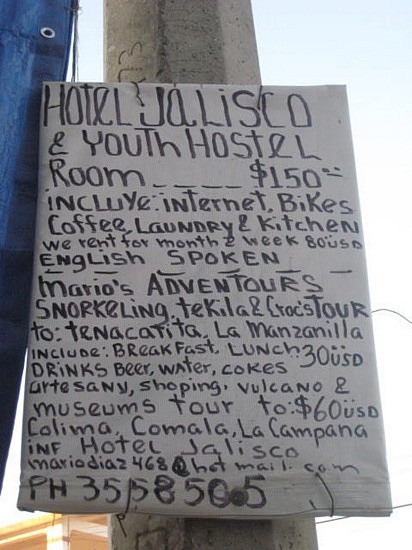 HOTEL JALISCO
& YOUTH HOSTEL
ROOM _ _ _ _ $150=
INCLUYE: internet, BiKes
Coffee, LAUNDRY & KitCHEN
we rent for month & week 80USD
ENGLISH SPOKEN
Mario's ADVENTOURS
SNORKELING, teKiLa & Croc's TOUR
to: teNACAtitA, LA MANZANILLA
INCLUDE: BREAKFAST, LUNCH 30USD
DRINKS BEER, WATER, COKES
artesany, shoping, vulcano &
museums tour to: $60USD
Colima, Comala, La Campana
INF HOTEL JALISCO
mariodiaz468@hotmail.com
PH 35 58 50 5